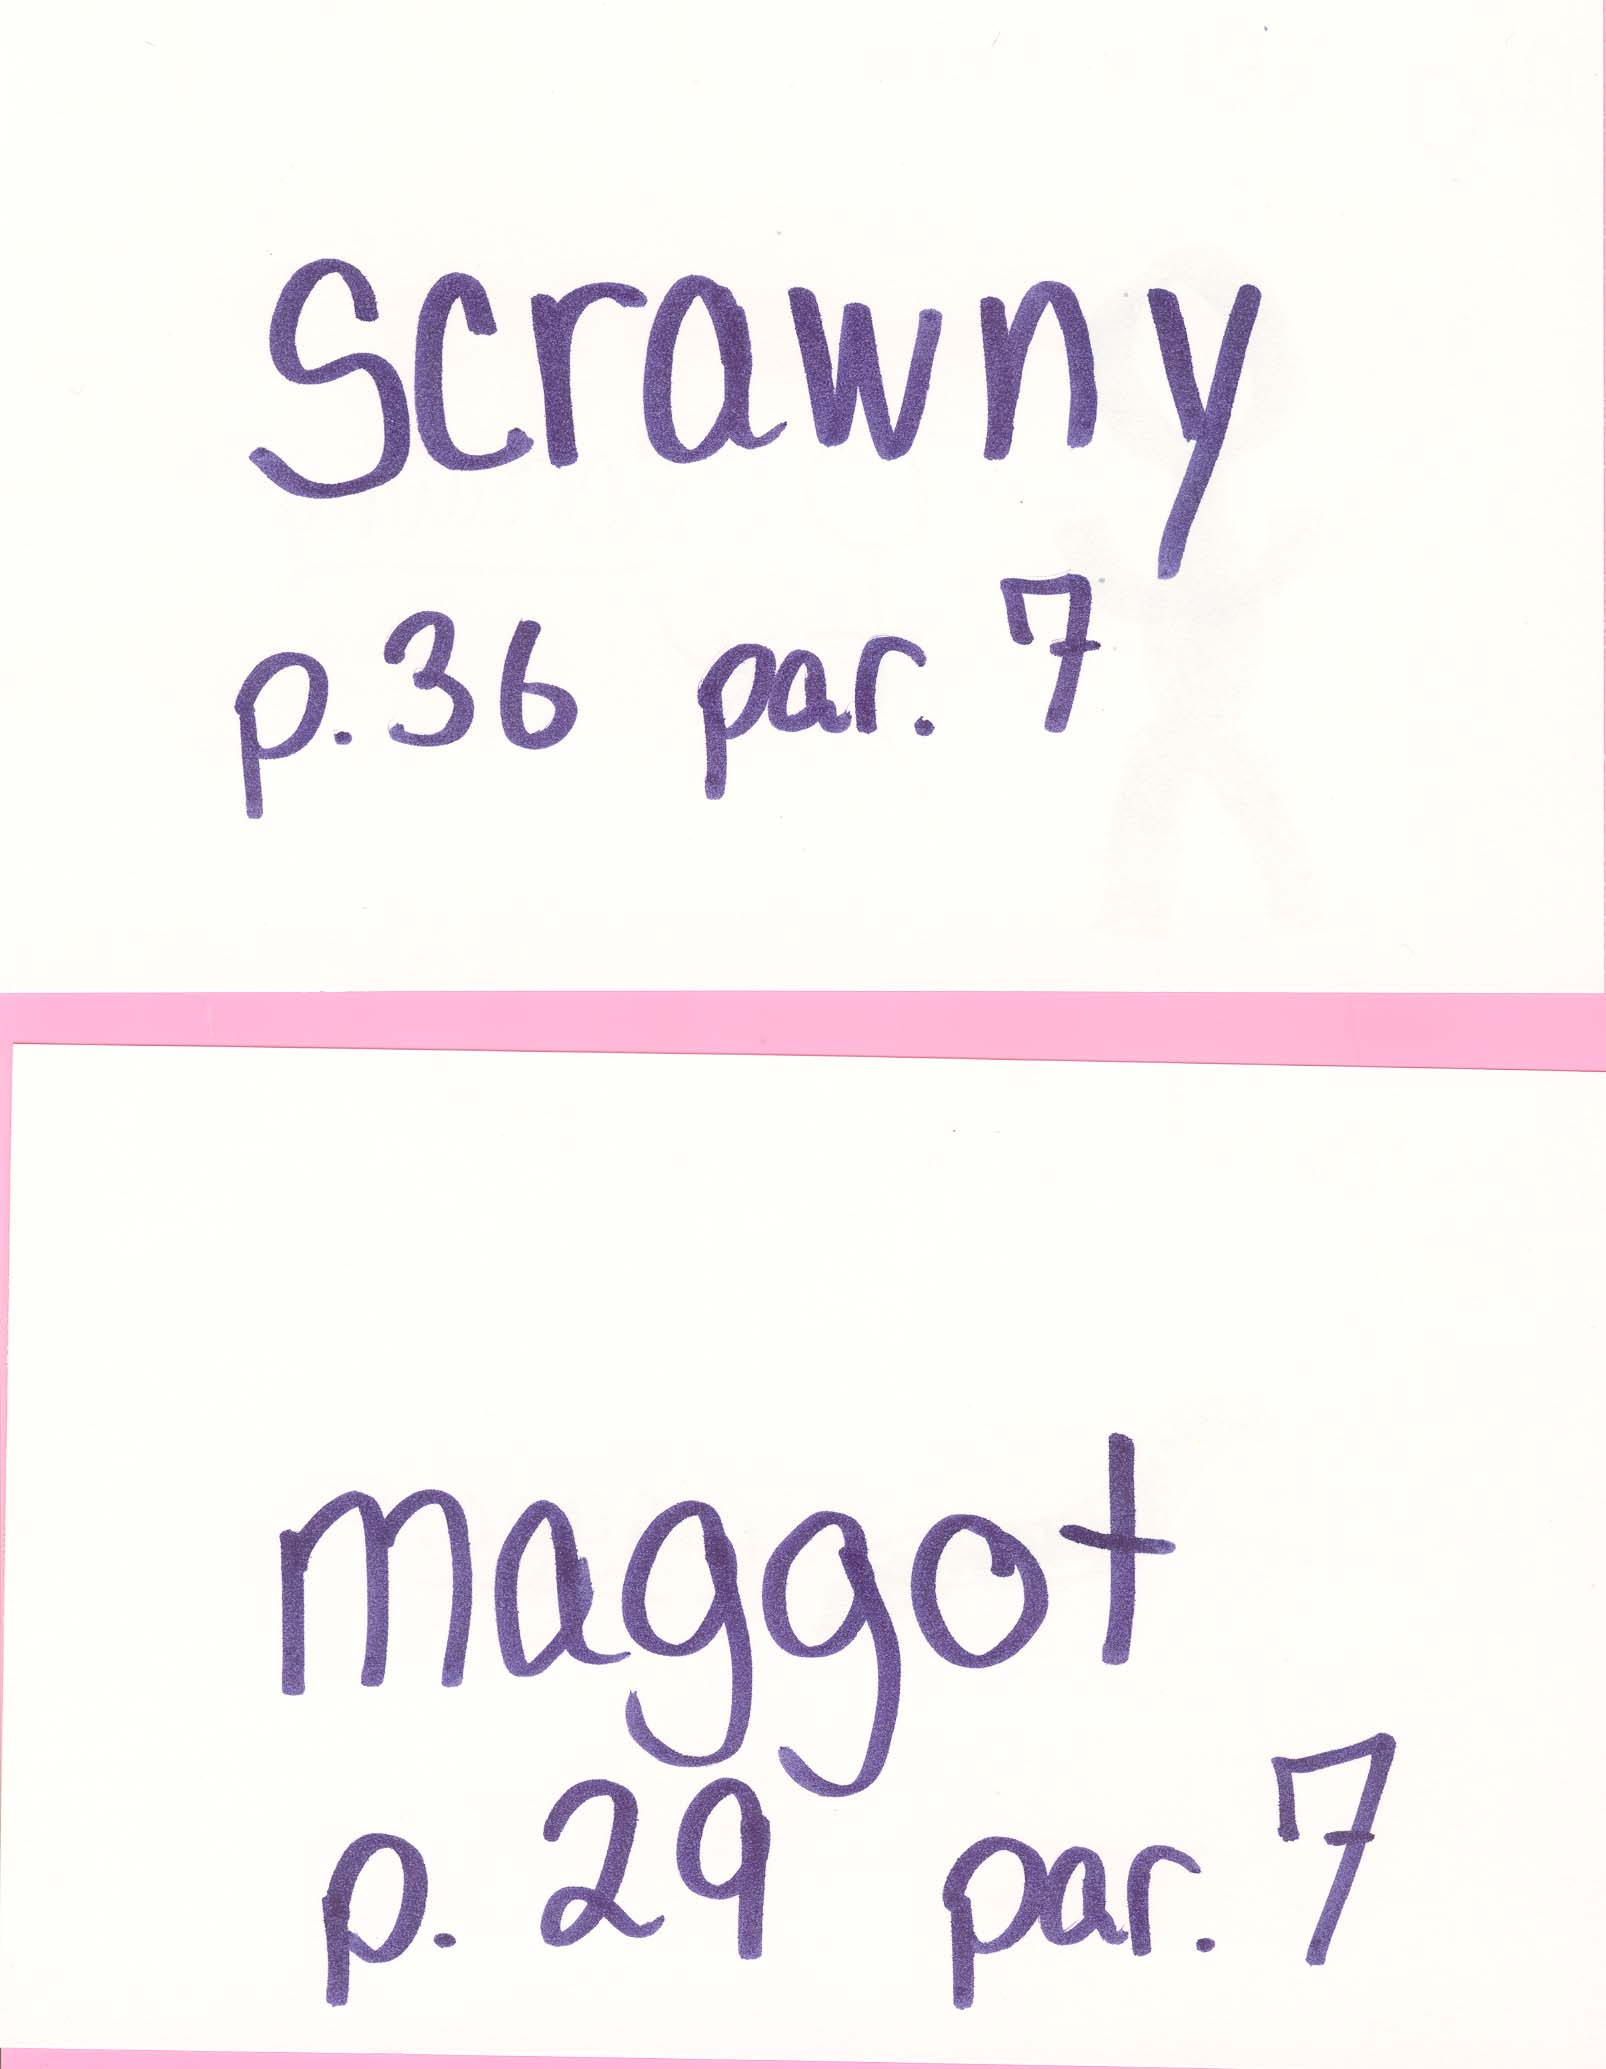 Scrawny
p.36 par. 7
maggot
p. 29 par. 7